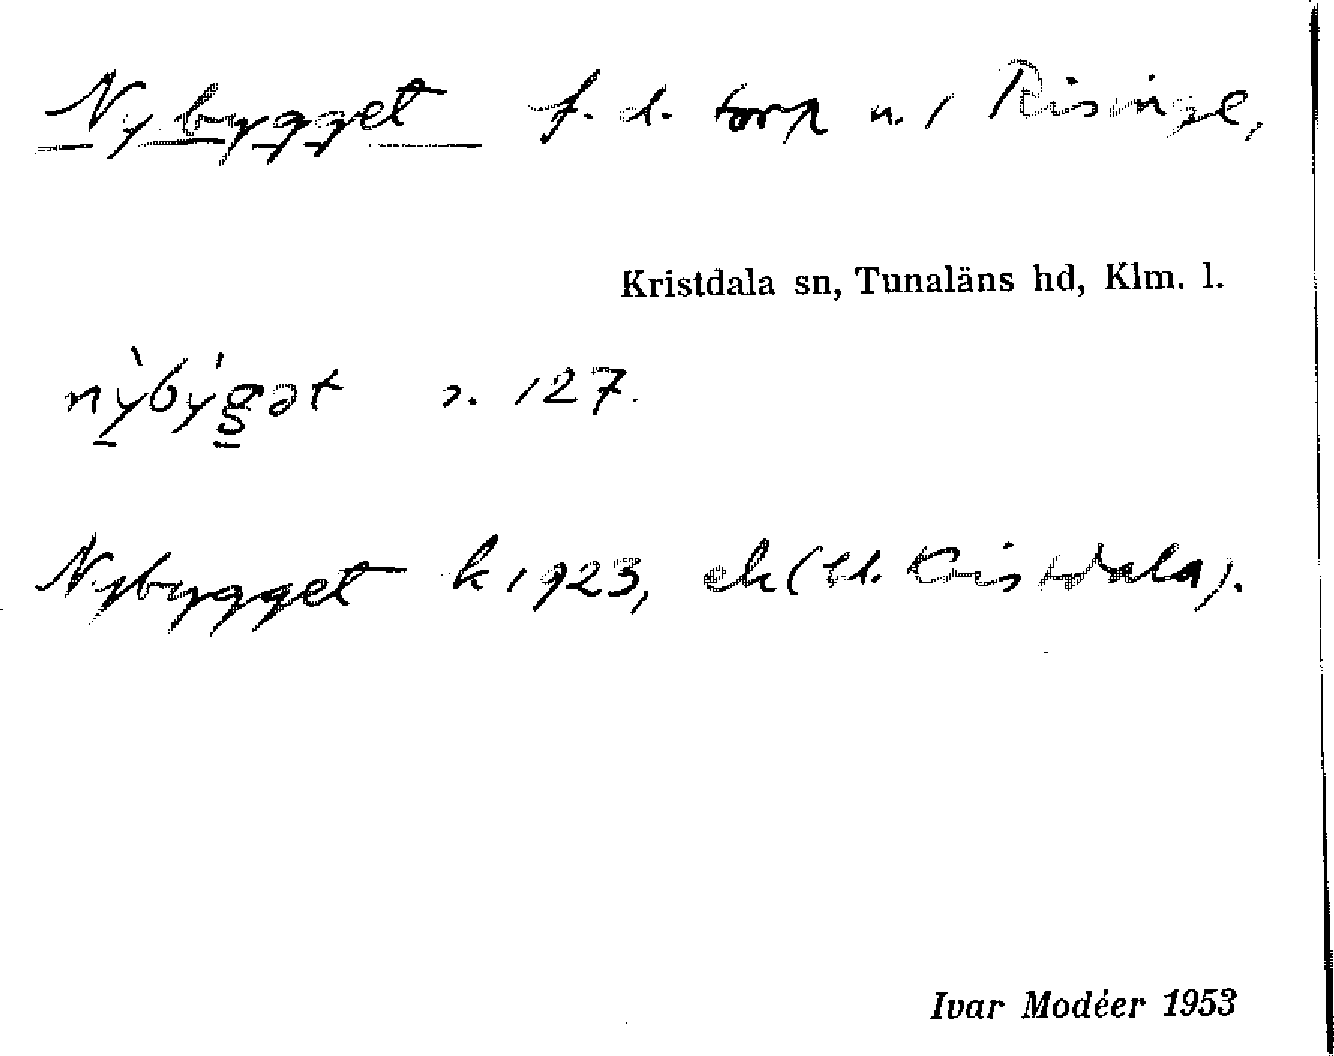 Nybygget f. d. torp u. / Risinge,
Kristdala sn, Tunaläns hd, Klm. l.
nỳbýgət s. 127.
Nybygget k 1923, ek (bl. Kristdala).
Ivar Modéer 1953